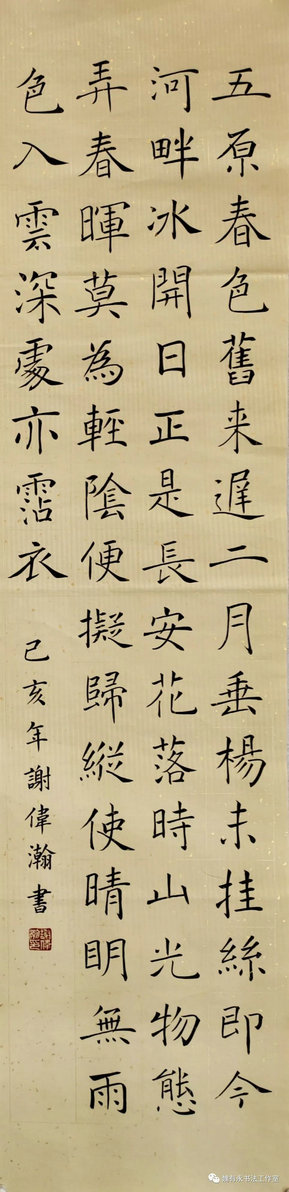 五原春色舊来遲二月垂楊未挂絲即今
河畔冰開日正是長安花落時山光物態
弄春暉莫為輕陰便擬歸縱使晴眀無雨
色入雲深處亦霑衣
己亥年謝偉瀚書
魏有永书法工作室